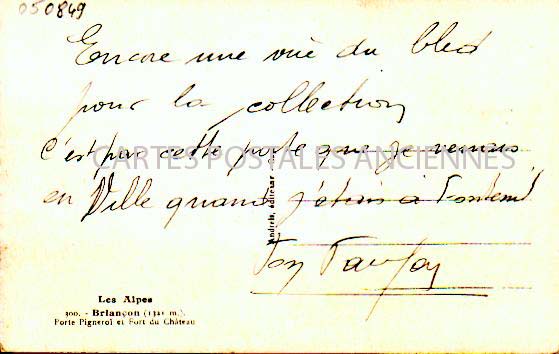 050849
Encore une vue du bled
pour la collection
c'est par cette porte que je venais
en Ville quand j'étais à Fontenil
Ton
CARTES POSTALES ANCIENNES
Les Alpes
300. - Briançon (1321 m.)
Porte Pignerol et Fort du Château